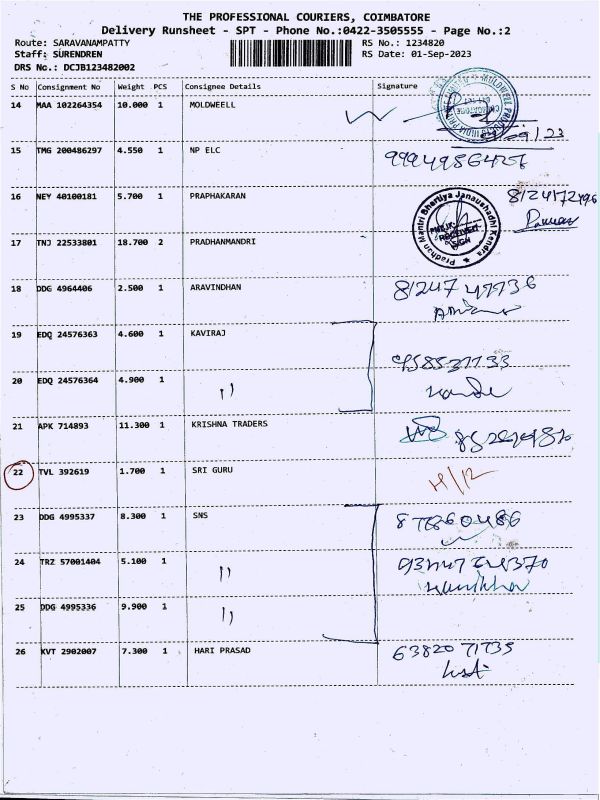 THE PROFESSIONAL COURIERS, COIMBATORE
Delivery Runsheet - SPT - Phone No.:0422-3505555 - Page No.:2
Route: SARAVANAMPATTY RS No.: 1234820
Staff: SURENDREN RS Date: 01-Sep-2023
DRS No.: DCJB123482002
S No Consignment No Weight PCS Consignee Details Signature
14 MAA 102264354 10.000 1 MOLDWEELL
15 TMG 200486297 4.550 1 NP ELC
16 NEY 40100181 5.700 1 PRAPHAKARAN
Pradhan Mantri Bhartiya Janaushadhi Kendra
17 TNJ 22533801 18.700 2 PRADHANMANDRI
18 DDG 4964406 2.500 1 ARAVINDHAN
19 EDQ 24576363 4.600 1 KAVIRAJ
20 EDQ 24576364 4.900 1 11
21 APK 714893 11.300 1 KRISHNA TRADERS
22 TVL 392619 1.700 1 SRI GURU
23 DDG 4995337 8.300 1 SNS
24 TRZ 57001404 5.100 1 11
25 DDG 4995336 9.900 1 11
26 KVT 2902007 7.300 1 HARI PRASAD 6382071735